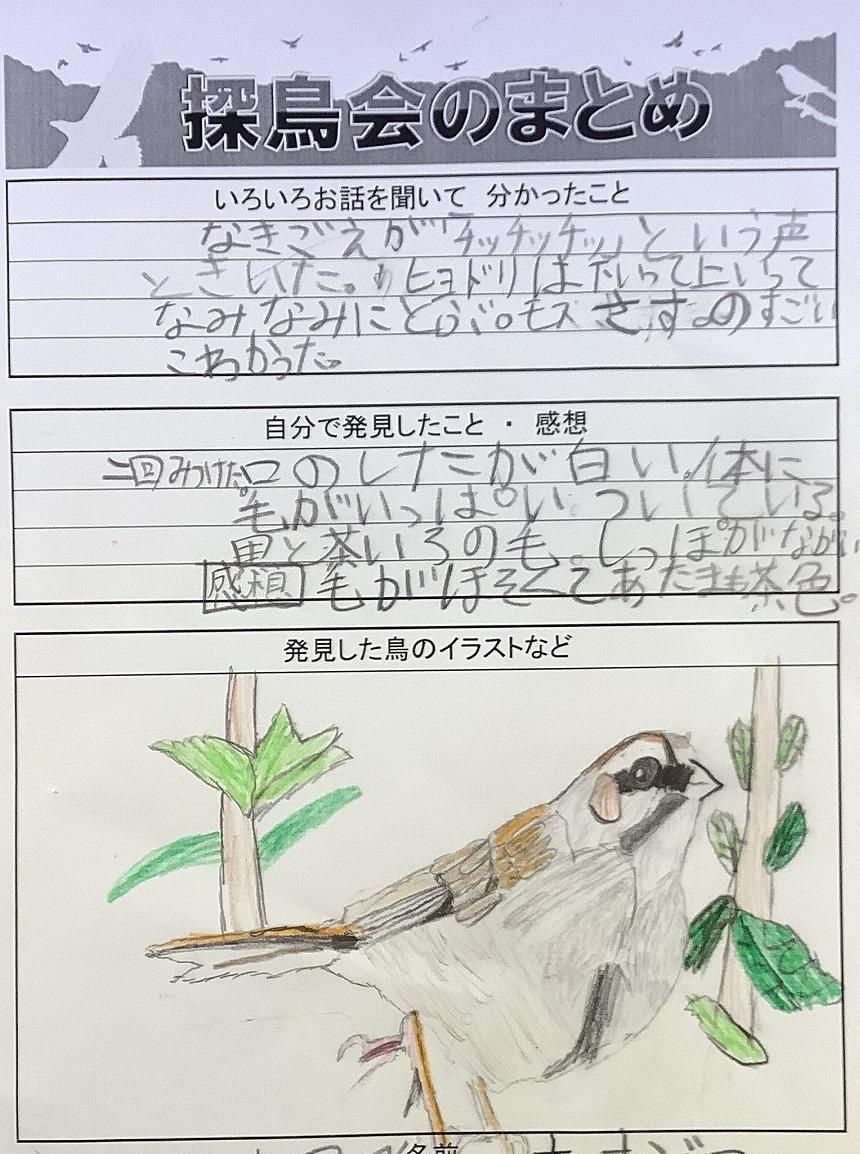 探鳥会のまとめ
いろいろお話を聞いて 分かったこと
なきごえが「チッチッチッ」という声
ときいた。ヒヨドリはたいって上いって
なみなみにとぶ。モズ さす。のすごい
こわかった。
自分で発見したこと ・ 感想
二回みつけた。口のしたこが白い。体に
毛がいっぱいついている。
黒と茶いろの毛。しっぽがながい
感想 毛がほそくてあたまも茶色。
発見した鳥のイラストなど
名前